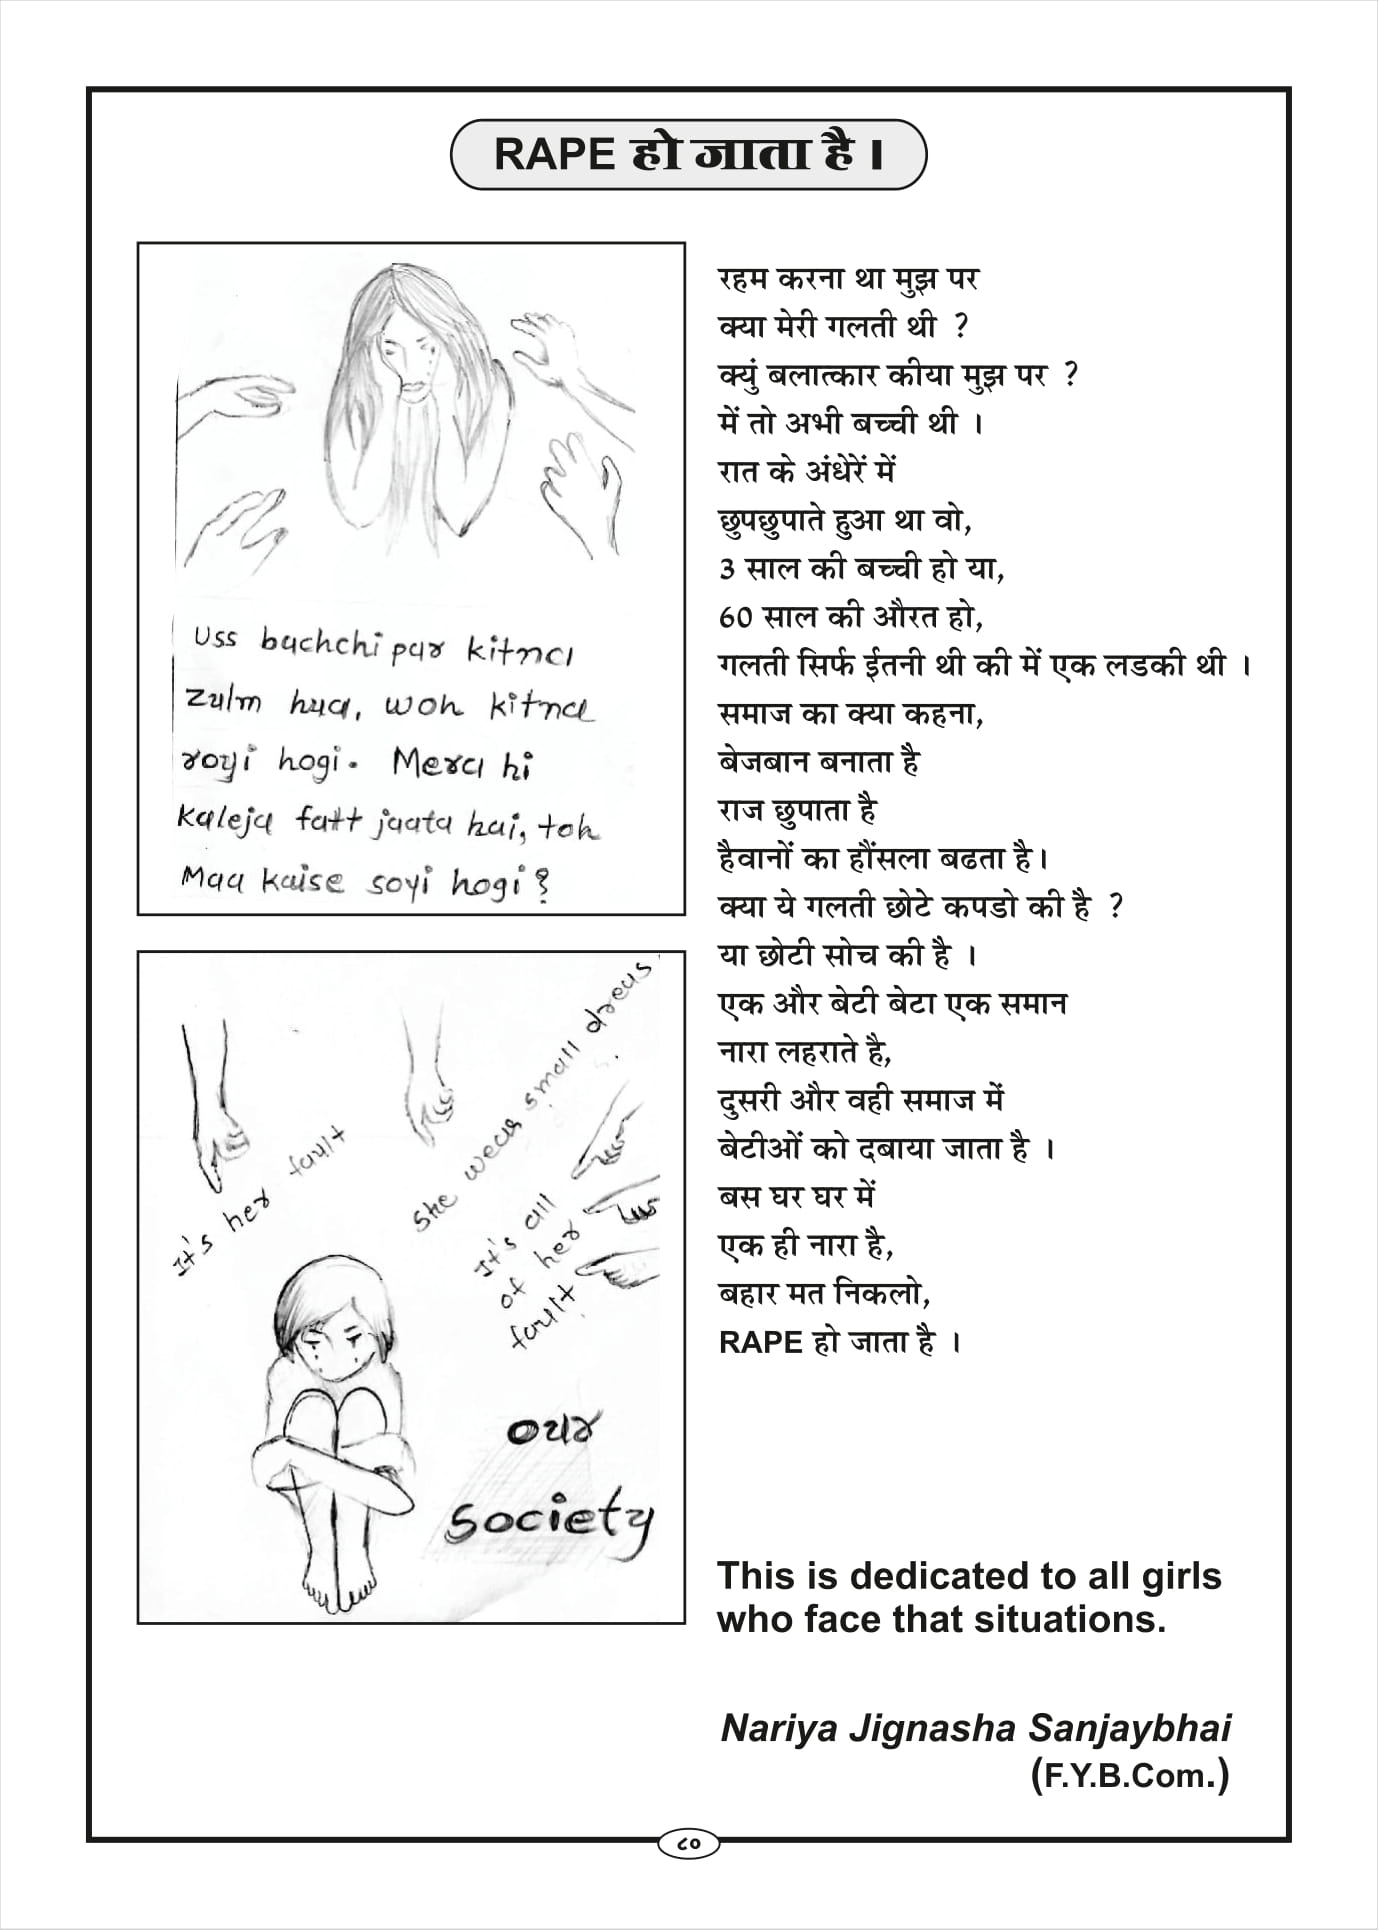 RAPE हो जाता है ।
Uss bachchi par kitna
zulm hua, woh kitna
royi hogi. Mera hi
kaleja fatt jaata hai, toh
Maa kaise soyi hogi?
It's her fault
She wears small dress
It's all
of her
fault
our
society
रहम करना था मुझ पर
क्या मेरी गलती थी ?
क्युं बलात्कार कीया मुझ पर ?
में तो अभी बच्ची थी ।
रात के अंधेरें में
छुपछुपाते हुआ था वो,
3 साल की बच्ची हो या,
60 साल की औरत हो,
गलती सिर्फ ईतनी थी की में एक लडकी थी ।
समाज का क्या कहना,
बेजबान बनाता है
राज छुपाता है
हैवानों का हौंसला बढता है।
क्या ये गलती छोटे कपडो की है ?
या छोटी सोच की है ।
एक और बेटी बेटा एक समान
नारा लहराते है,
दुसरी और वही समाज में
बेटीओं को दबाया जाता है ।
बस घर घर में
एक ही नारा है,
बहार मत निकलो,
RAPE हो जाता है ।
This is dedicated to all girls
who face that situations.
Nariya Jignasha Sanjaybhai
(F.Y.B.Com.)
૮૦